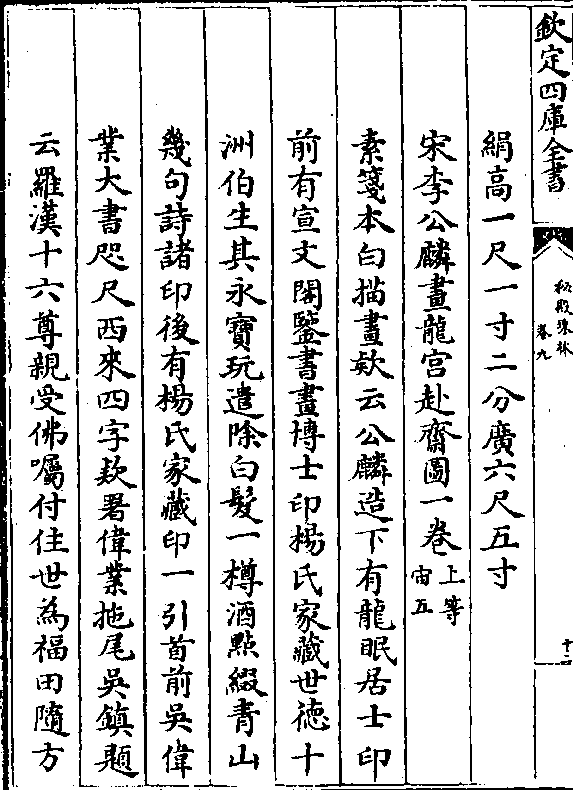 欽定四庫全書
秘殿珠林
卷九
絹高一尺一寸二分廣六尺五寸
宋李公麟畫龍宫赴齋圖一卷上等
宙五
素箋本白描畫欵云公麟造下有龍眠居士印
前有宣文閣鑒書畫博士印楊氏家藏世徳十
洲伯生其永寶玩遣除白髮一樽酒點綴青山
幾句詩諸印後有楊氏家藏印一引首前吳偉
業大書咫尺西來四字欵署偉業拖尾吳鎮題
云羅漢十六尊親受佛囑付住世為福田隨方